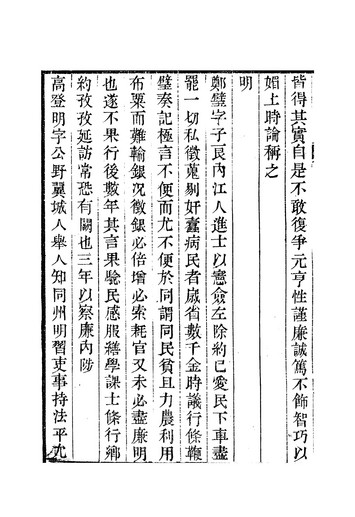 皆得其實自是不敢復爭元亨性謹廉誠篤不飾智巧以
媚上時論稱之
明
鄭璧字子良內江人進士以憲僉左除約已愛民下車盡
罷一切私徵蒐剔奸蠹病民者歲省數千金時議行條鞭
璧奏記極言不便而尤不便於同謂同民貧且力農利用
布粟而難輸銀况徵銀必倍增必索耗官又未必盡廉明
也遂不果行後數年其言果驗民感服繕學課士條行鄉
約孜孜延訪常恐有闕也三年以察廉內陟
高登明字公野翼城人舉人知同州明習吏事持法平尤